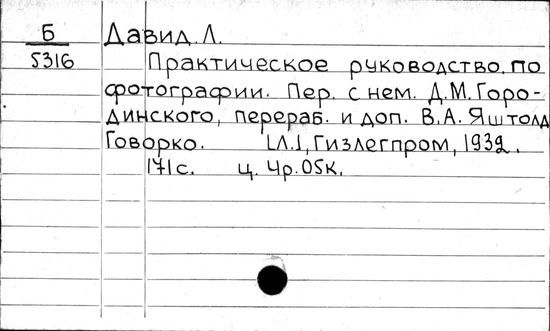 Б
5316
Давид Л.
Практическое руководство по
фотографии. Пер. с нем. Д.М. Горо-
динского, перераб. и доп. В.А. Яштолд
Говорко. [Л.], Гизлегпром, 1932.
171 с. ц. 4р. 05к.